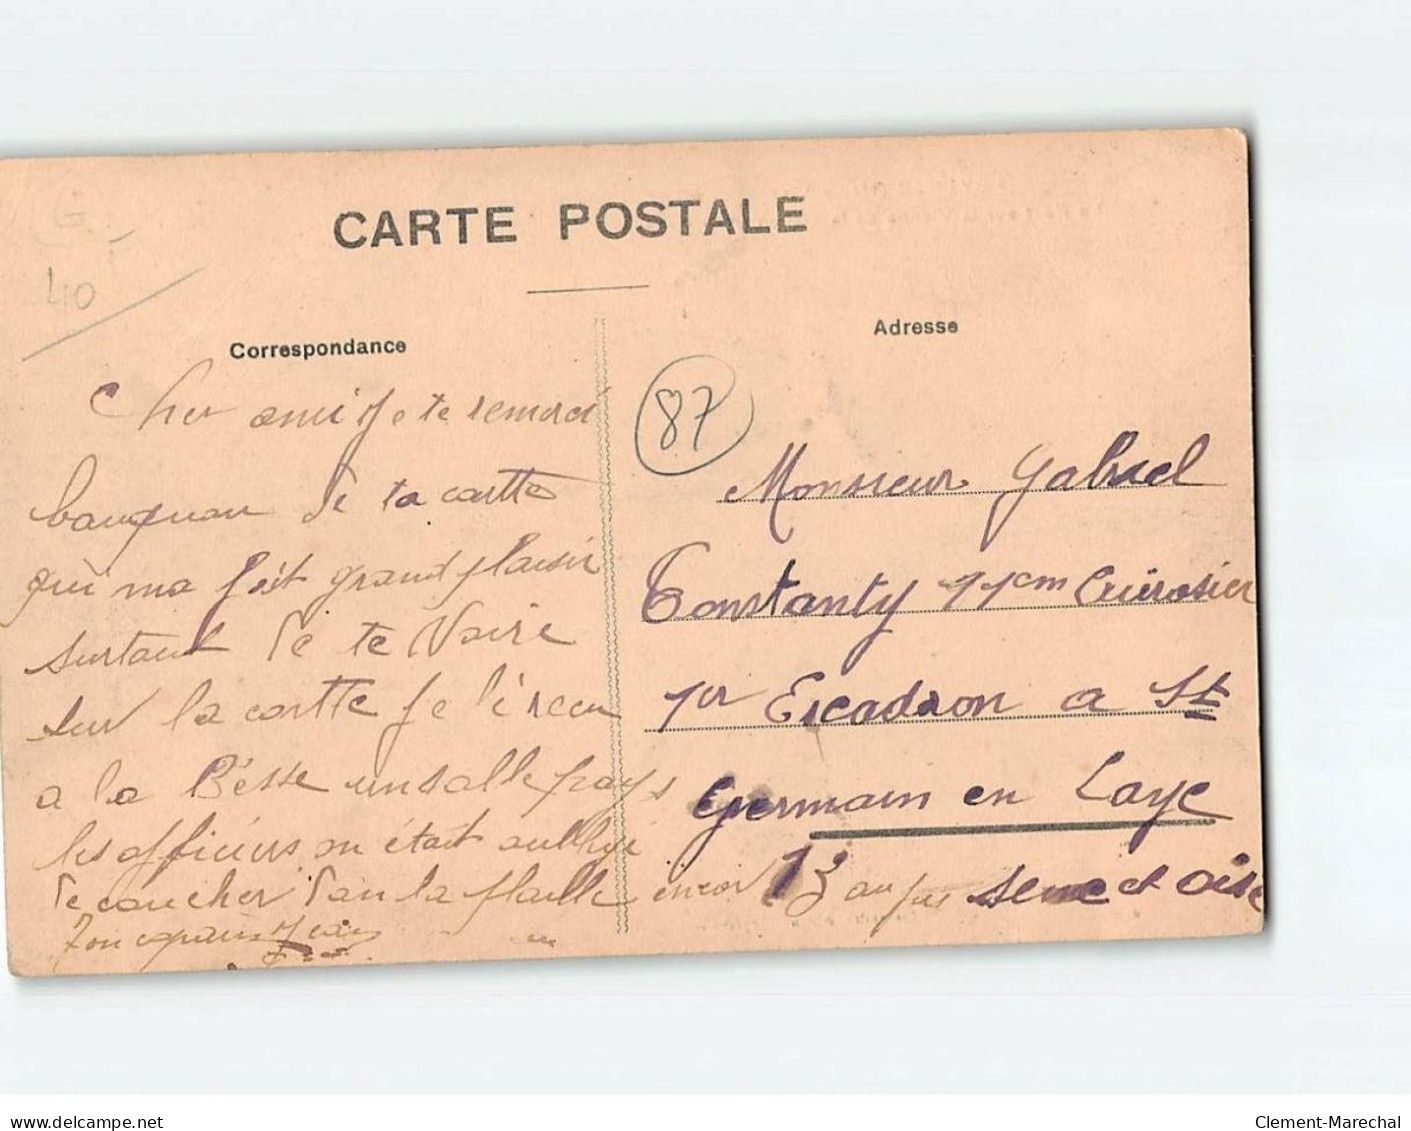 CARTE POSTALE
40
Correspondance
Adresse
87
Cher ami Je te remerci
baucquau de ta cartte
qui ma fait grand plaisir
surtaut de te Voire
sur la cartte je l'é recu
a la Bésse un salle pays
les officiers on était aubligé
de coucher dan la paille encor 13 au jus
Ton copain Jean
Monsieur Gabriel
Constanty 11em Cuirasier
1er Escadron a St
Germain en Laye
Seine et Oise
www.delcampe.net
Clement-Marechal